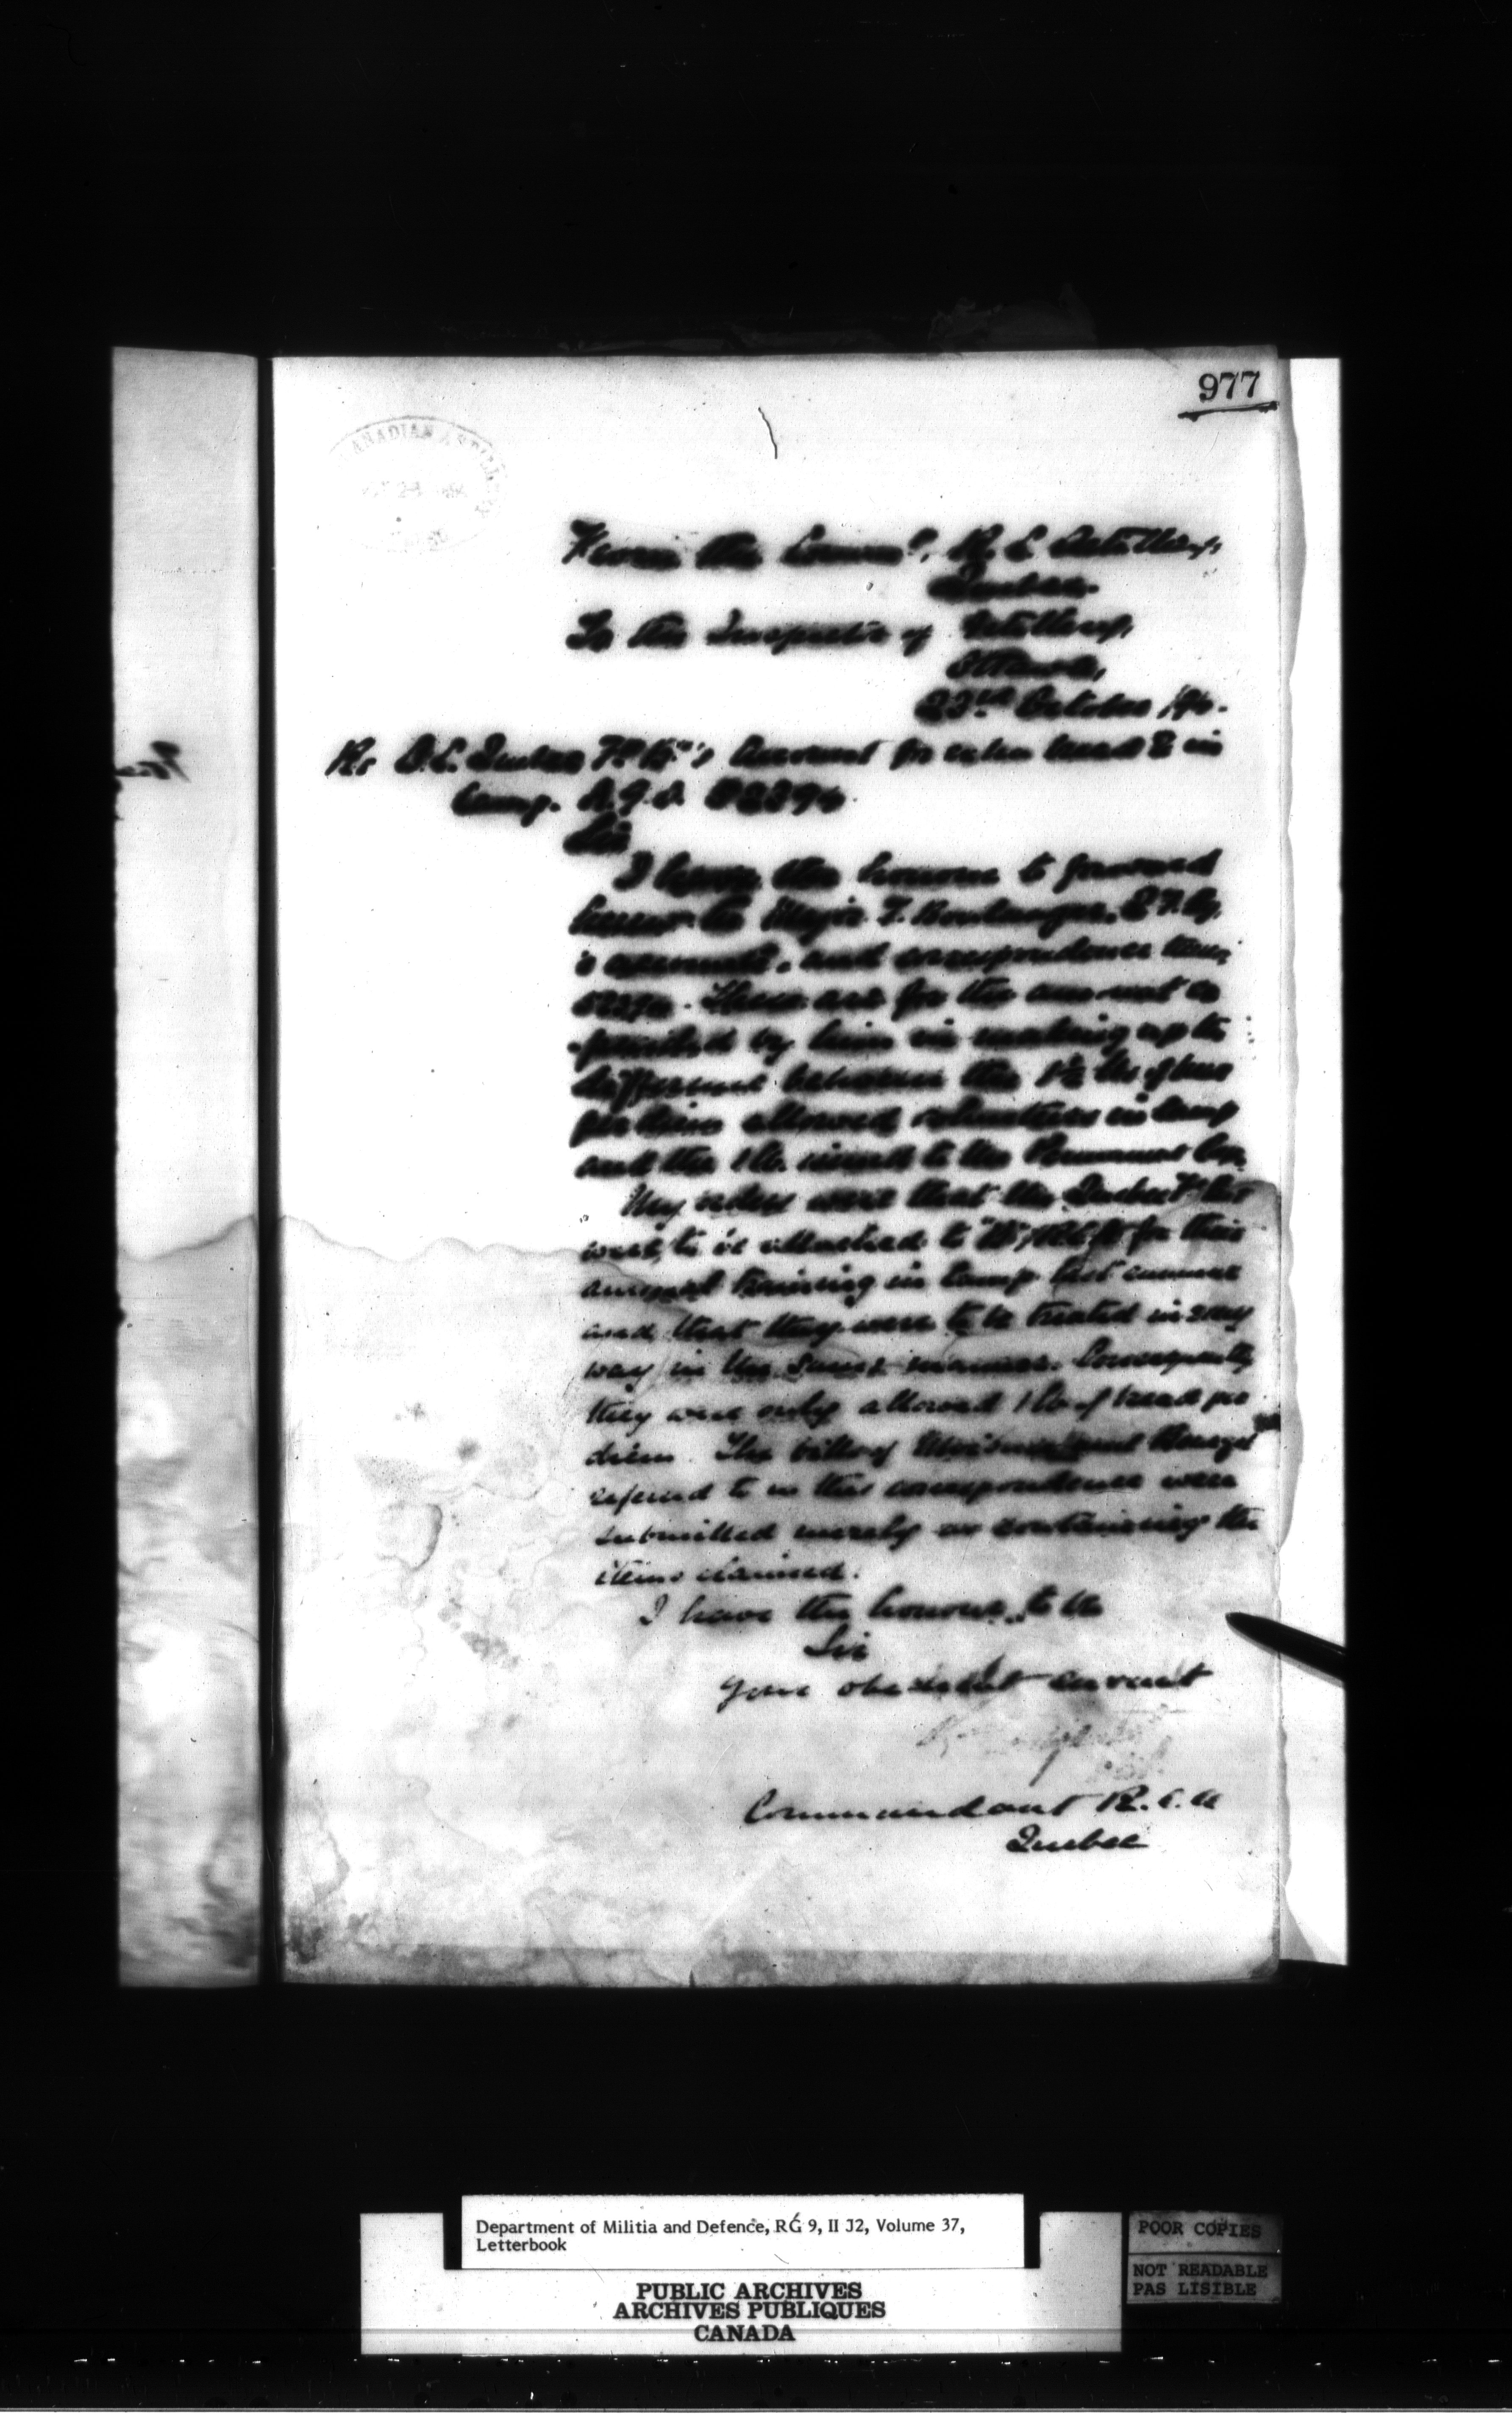 977
CANADIAN ARTILLERY
From the Comm^t, R. C. Artillery,
Quebec.
To the Inspector of Artillery,
Ottawa,
23rd October /96.
Re O.C. Quebec F. B^y's Account for extra bread & in
Camp. A.G.O.
Sir
I have the honour to forward
hereto Major F. Boulanger, Q F. By,
s accounts, and correspondence
These are for the amount ex
-pended by him in making up the
difference between the 1½ lbs of
per diem allowed volunteers in Camp
and the 1 lb. issued to the Permanent Corps.
My orders were that the Quebec F.
were to be attached to for their
annual training in Camp last summer
and that they were to be treated in every
way in the same manner. Consequently
they were only allowed 1 lb of bread per
diem. The bills of and
referred to in this correspondence were
submitted merely as containing the
items claimed.
I have the honour to be
Sir
Your obedient servant
Commandant R.C.A
Quebec
Department of Militia and Defence, RG 9, II J2, Volume 37,
Letterbook
PUBLIC ARCHIVES
ARCHIVES PUBLIQUES
CANADA
POOR COPIES
NOT READABLE
PAS LISIBLE